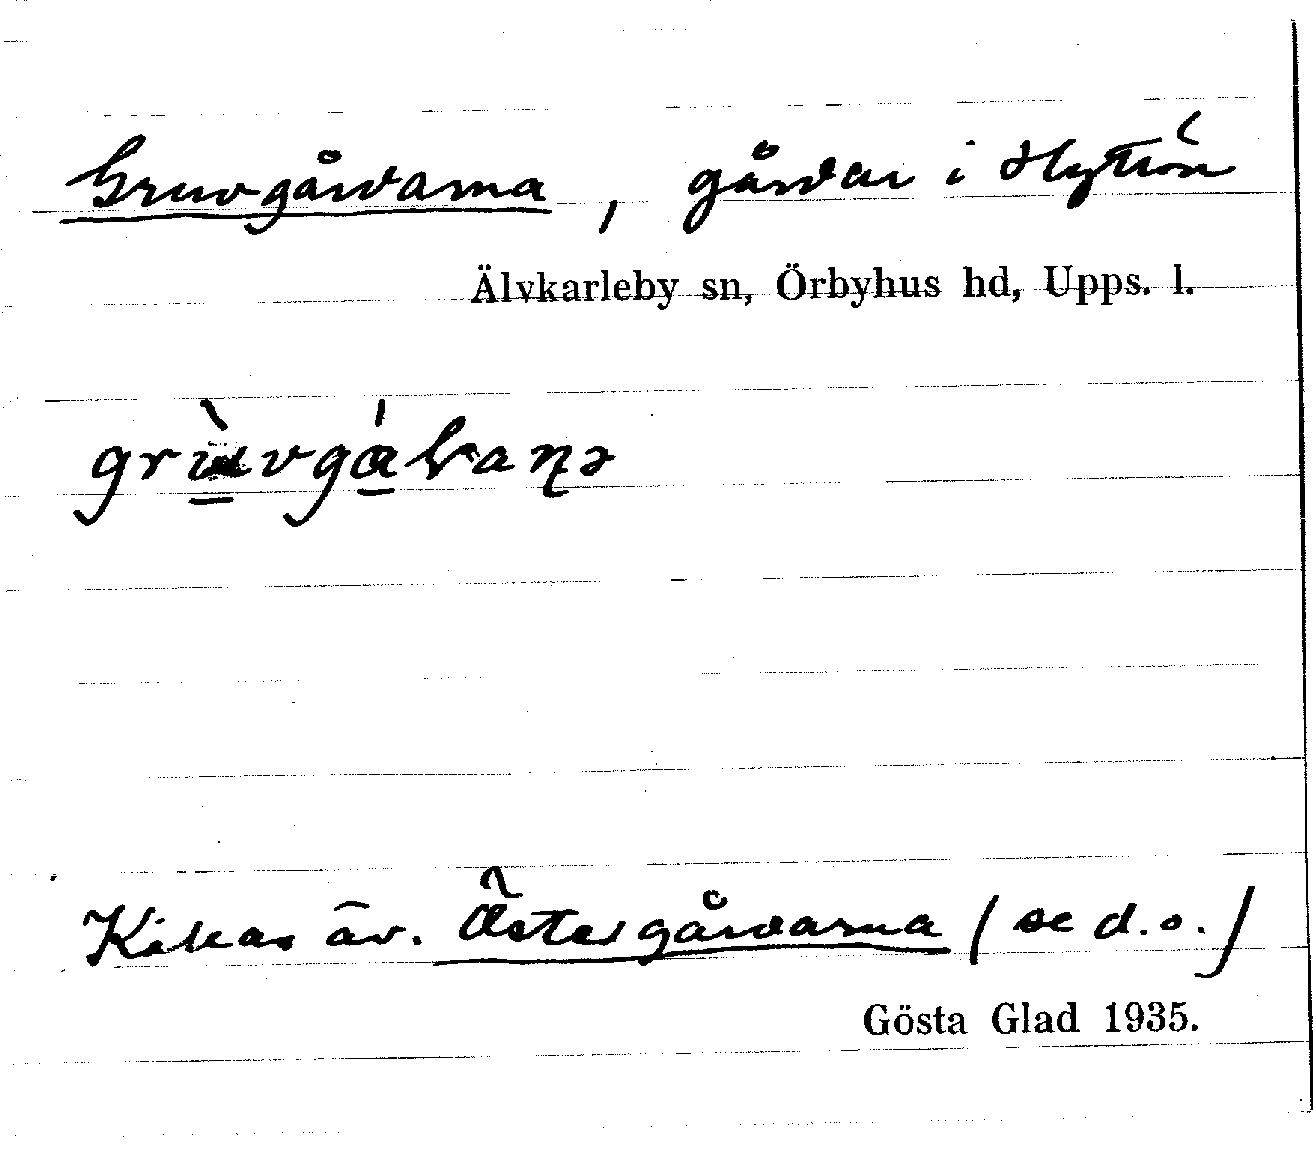 Gruvgårdarna, gårdar i Hyttön
Älvkarleby sn, Örbyhus hd, Upps. l.
Kallas äv. Östergårdarna (se d.o.)
Gösta Glad 1935.